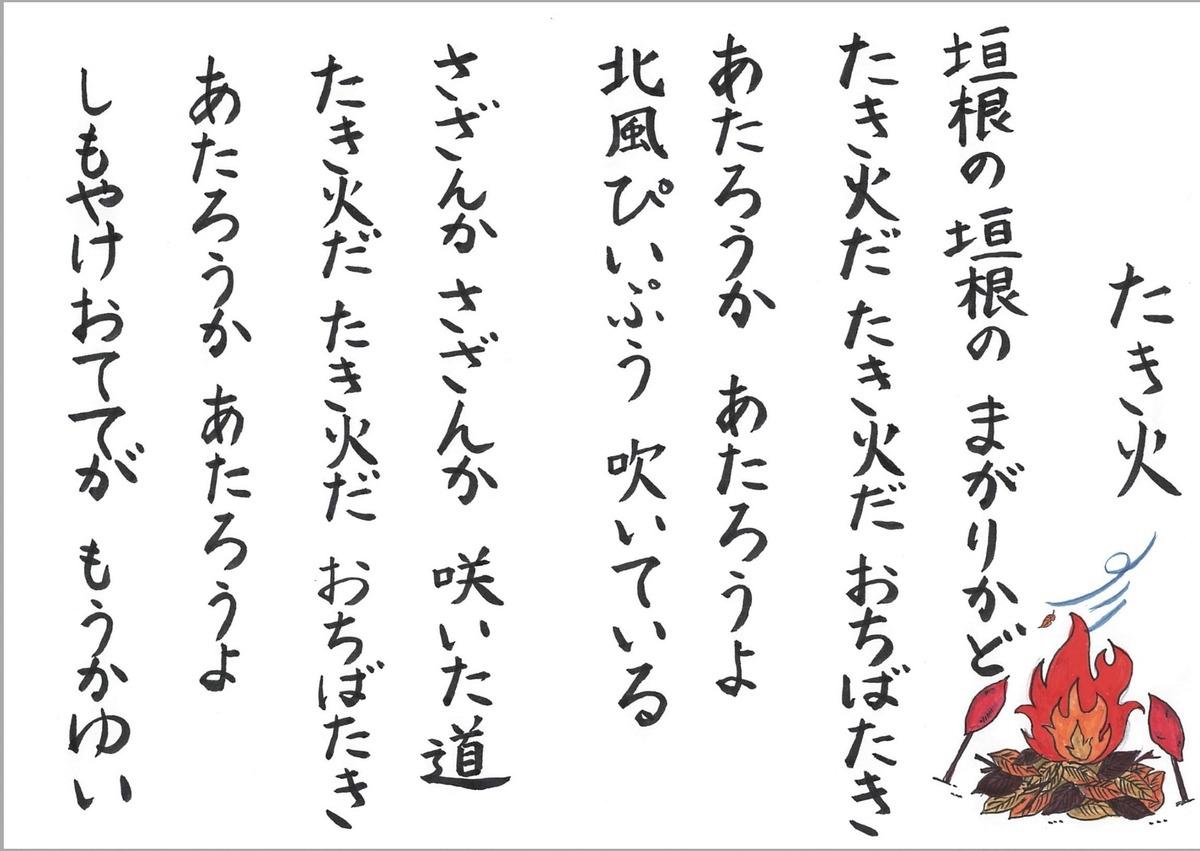 たき火
垣根の 垣根の まがりかど
たき火だ たき火だ おちばたき
あたろうか あたろうよ
北風ぴいぷう 吹いている
さざんか さざんか 咲いた道
たき火だ たき火だ おちばたき
あたろうか あたろうよ
しもやけおててが もうかゆい